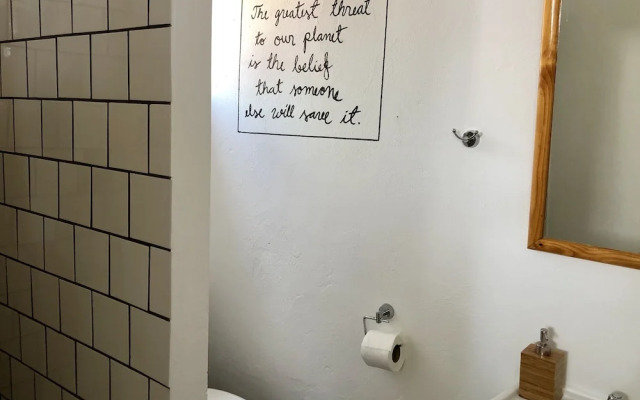 The greatest threat
to our planet
is the belief
that someone
else will save it.